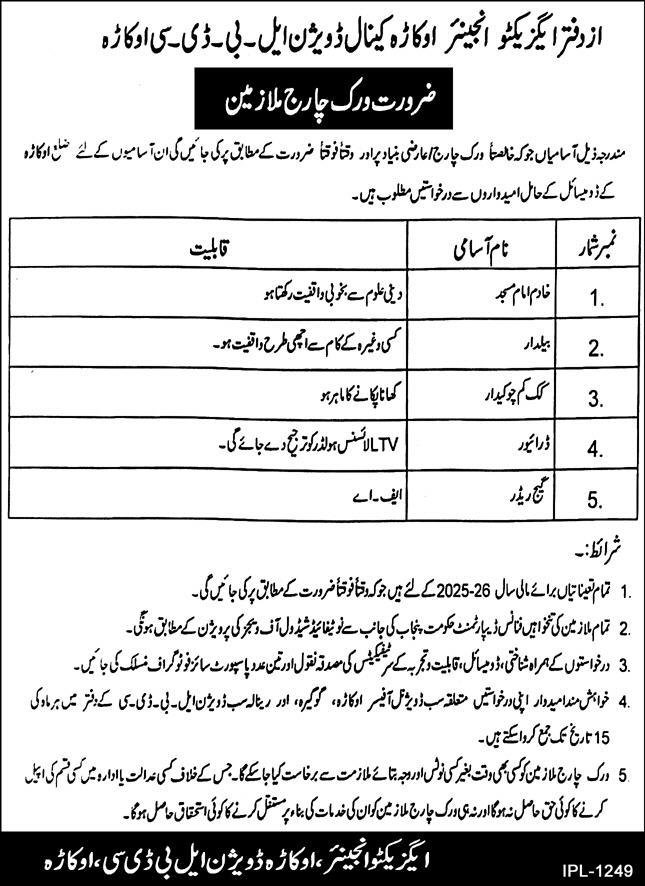 از دفتر ایگزیکٹو انجینئر اوکاڑہ کینال ڈویژن ایل۔بی۔ڈی۔سی اوکاڑہ
ضرورت ورک چارج ملازمین
مندرجہ ذیل آسامیاں جو کہ خالصتاً ورک چارج/عارضی بنیاد پر اور وقتاً فوقتاً ضرورت کے مطابق پر کی جائیں گی ان آسامیوں کے لئے ضلع اوکاڑہ
کے ڈومیسائل کے حامل امیدواروں سے درخواستیں مطلوب ہیں۔
نمبر شمار نام آسامی قابلیت
1. خادم امام مسجد دینی علوم سے بخوبی واقفیت رکھتا ہو
2. بیلدار کسی وغیرہ کے کام سے اچھی طرح واقفیت ہو۔
3. کک کم چوکیدار کھانا پکانے کا ماہر ہو
4. ڈرائیور LTV لائسنس ہولڈر کو ترجیح دے جائے گی۔
5. گیج ریڈر ایف۔اے
شرائط:۔
1. تمام تعیناتیاں برائے مالی سال 26-2025 کے لئے ہیں جو کہ وقتاً فوقتاً ضرورت کے مطابق پر کی جائیں گی۔
2. تمام ملازمین کی تنخواہیں فنانس ڈیپارٹمنٹ حکومت پنجاب کی جانب سے نوٹیفائیڈ شیڈول آف ویجز کی پرویژن کے مطابق ہونگی۔
3. درخواستوں کے ہمراہ شناختی، ڈومیسائل، قابلیت و تجربہ کے سرٹیفکیٹس کی مصدقہ نقول اور تین عدد پاسپورٹ سائز فوٹو گراف منسلک کی جائیں۔
4. خواہش مند امیدوار اپنی درخواستیں متعلقہ سب ڈویژنل آفیسر اوکاڑہ، گوگیرہ، اور رینالہ سب ڈویژن ایل۔بی۔ڈی۔سی کے دفتر میں ہر ماہ کی
15 تاریخ تک جمع کروا سکتے ہیں۔
5. ورک چارج ملازمین کو کسی بھی وقت بغیر کسی نوٹس اور وجہ بتائے ملازمت سے برخاست کیا جا سکے گا۔ جس کے خلاف کسی عدالت یا ادارہ میں کسی قسم کی اپیل
کرنے کا کوئی حق حاصل نہ ہوگا اور نہ ہی ورک چارج ملازمین کو ان کی خدمات کی بناء پر مستقل کرنے کا کوئی استحقاق حاصل ہوگا۔
ایگزیکٹو انجینئر، اوکاڑہ ڈویژن ایل بی ڈی سی، اوکاڑہ
IPL-1249